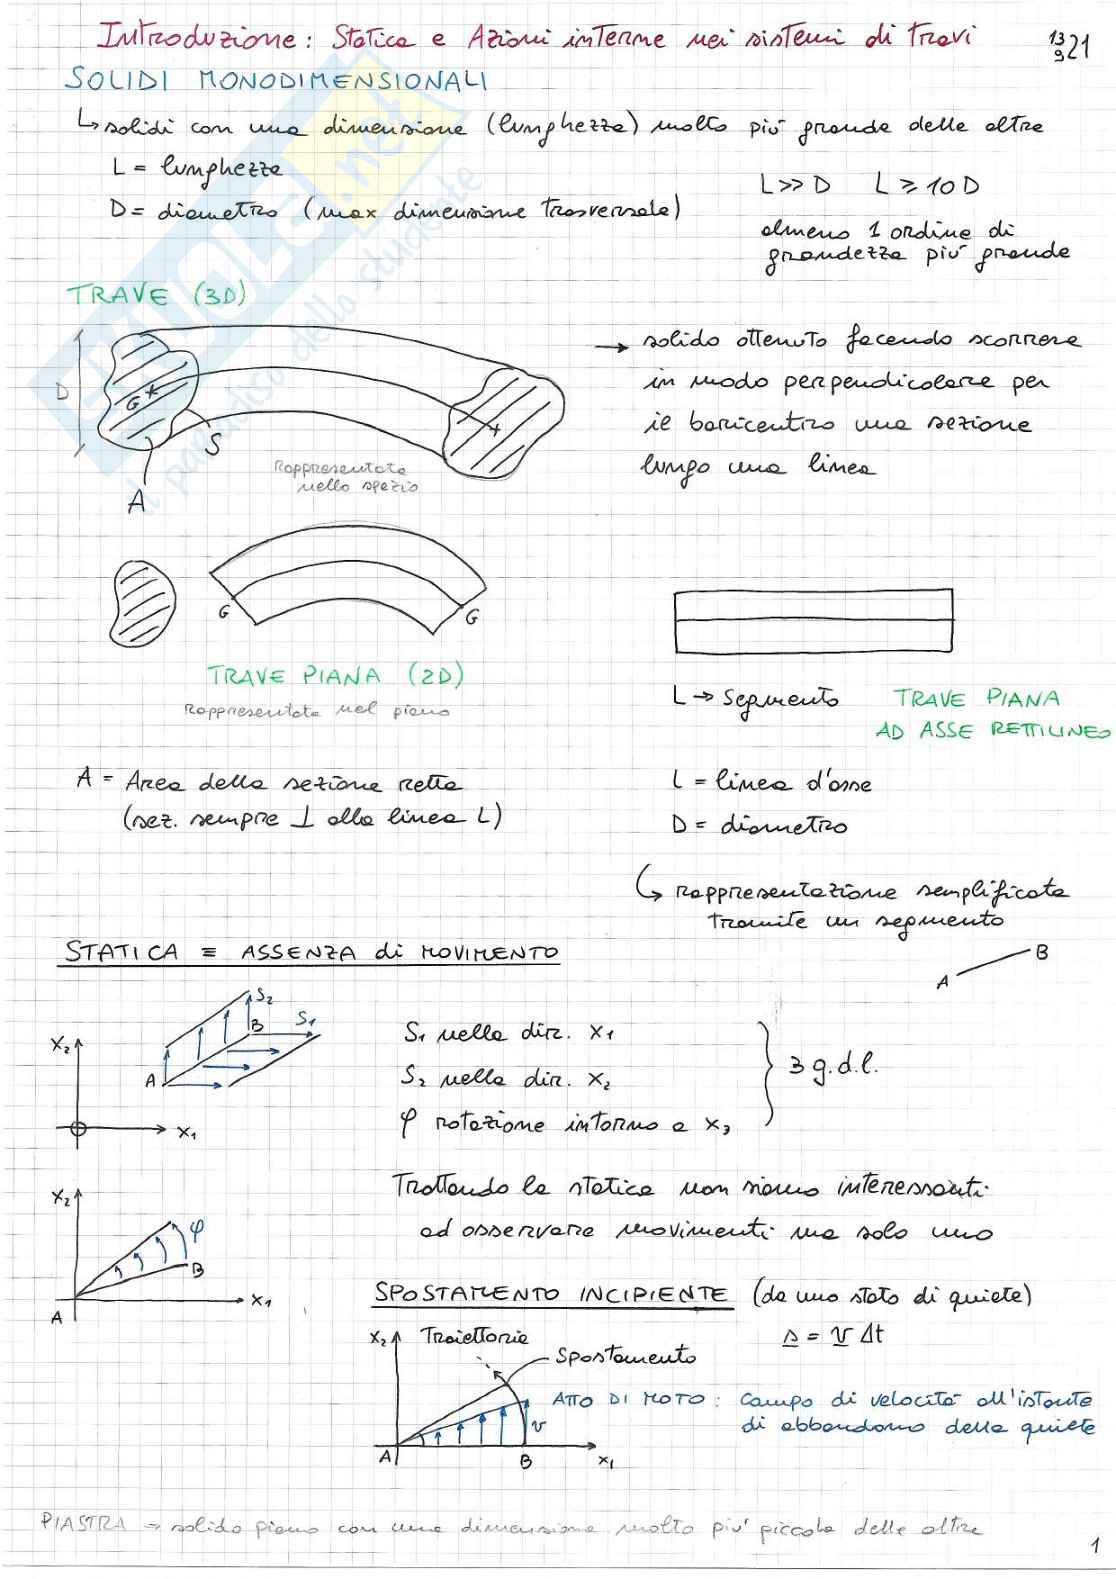 Introduzione: Statica e Azioni interne nei sistemi di travi
13
9
21
SOLIDI MONODIMENSIONALI
↳ solidi con una dimensione (lunghezza) molto più grande delle altre
L = lunghezza
D = diametro (max dimensione trasversale)
L >> D L ≥ 10 D
almeno 1 ordine di
grandezza più grande
TRAVE (3D)
D
G
S
A
Rappresentata
nello spazio
→ solido ottenuto facendo scorrere
in modo perpendicolare per
il baricentro una sezione
lungo una linea
G
G
TRAVE PIANA (2D)
Rappresentata nel piano
L → Segmento
TRAVE PIANA
AD ASSE RETTILINEO
A = Area della sezione retta
(sez. sempre ⊥ alla linea L)
L = linea d'asse
D = diametro
↳ rappresentazione semplificata
tramite un segmento
A B
STATICA ≡ ASSENZA di MOVIMENTO
S2
B
S1
X2
A
X1
S1 nella dir. X1
S2 nella dir. X2
φ rotazione intorno a X3
3 g.d.l.
X2
φ
B
A
X1
Trattando la statica non siamo interessati
ad osservare movimenti ma solo uno
SPOSTAMENTO INCIPIENTE (da uno stato di quiete)
s = v Δt
X2
Traiettoria
Spostamento
ATTO DI MOTO: Campo di velocità all'istante
di abbandono della quiete
v
A
B
X1
PIASTRA → solido piano con una dimensione molto più piccola delle altre
1
SKUOLA.net
il paradiso dello studente